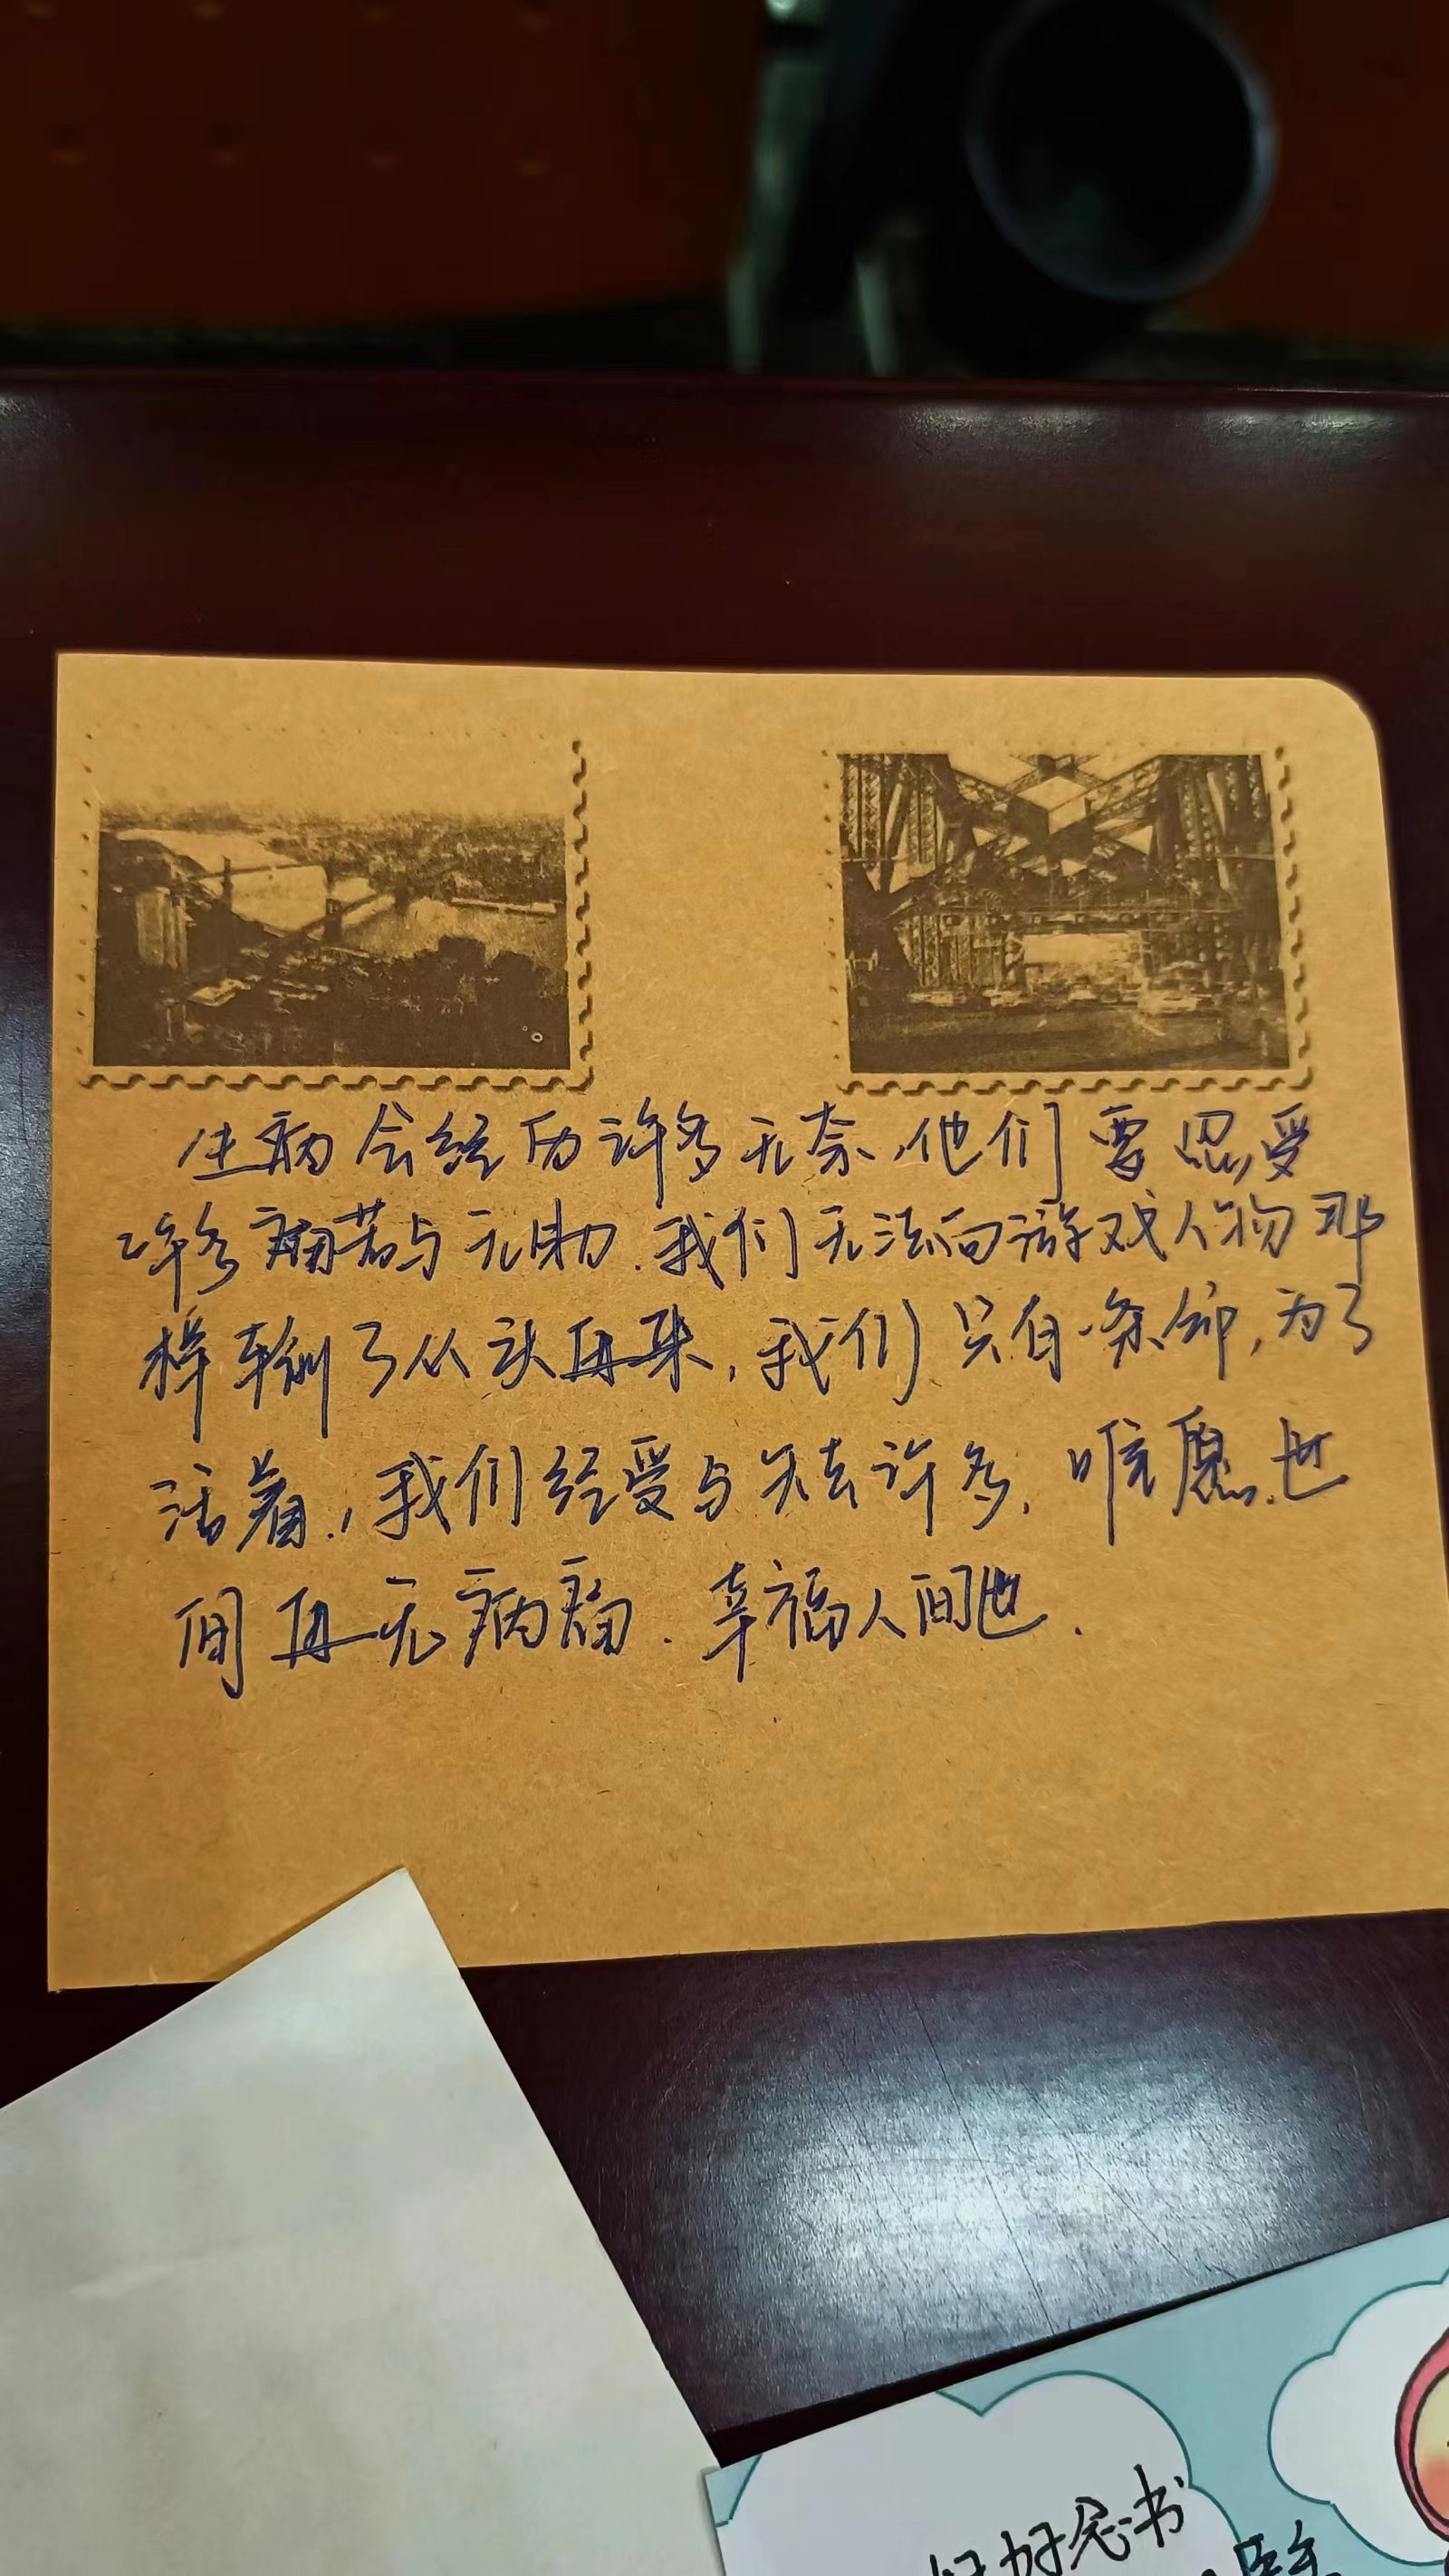 生病会经历许多无奈，他们要忍受
许多痛苦与无助.我们无法向游戏人物那
样输了从头再来，我们只有一条命，为了
活着，我们经受与失去许多.唯愿世
间再无病痛.幸福人间也.
好好念书